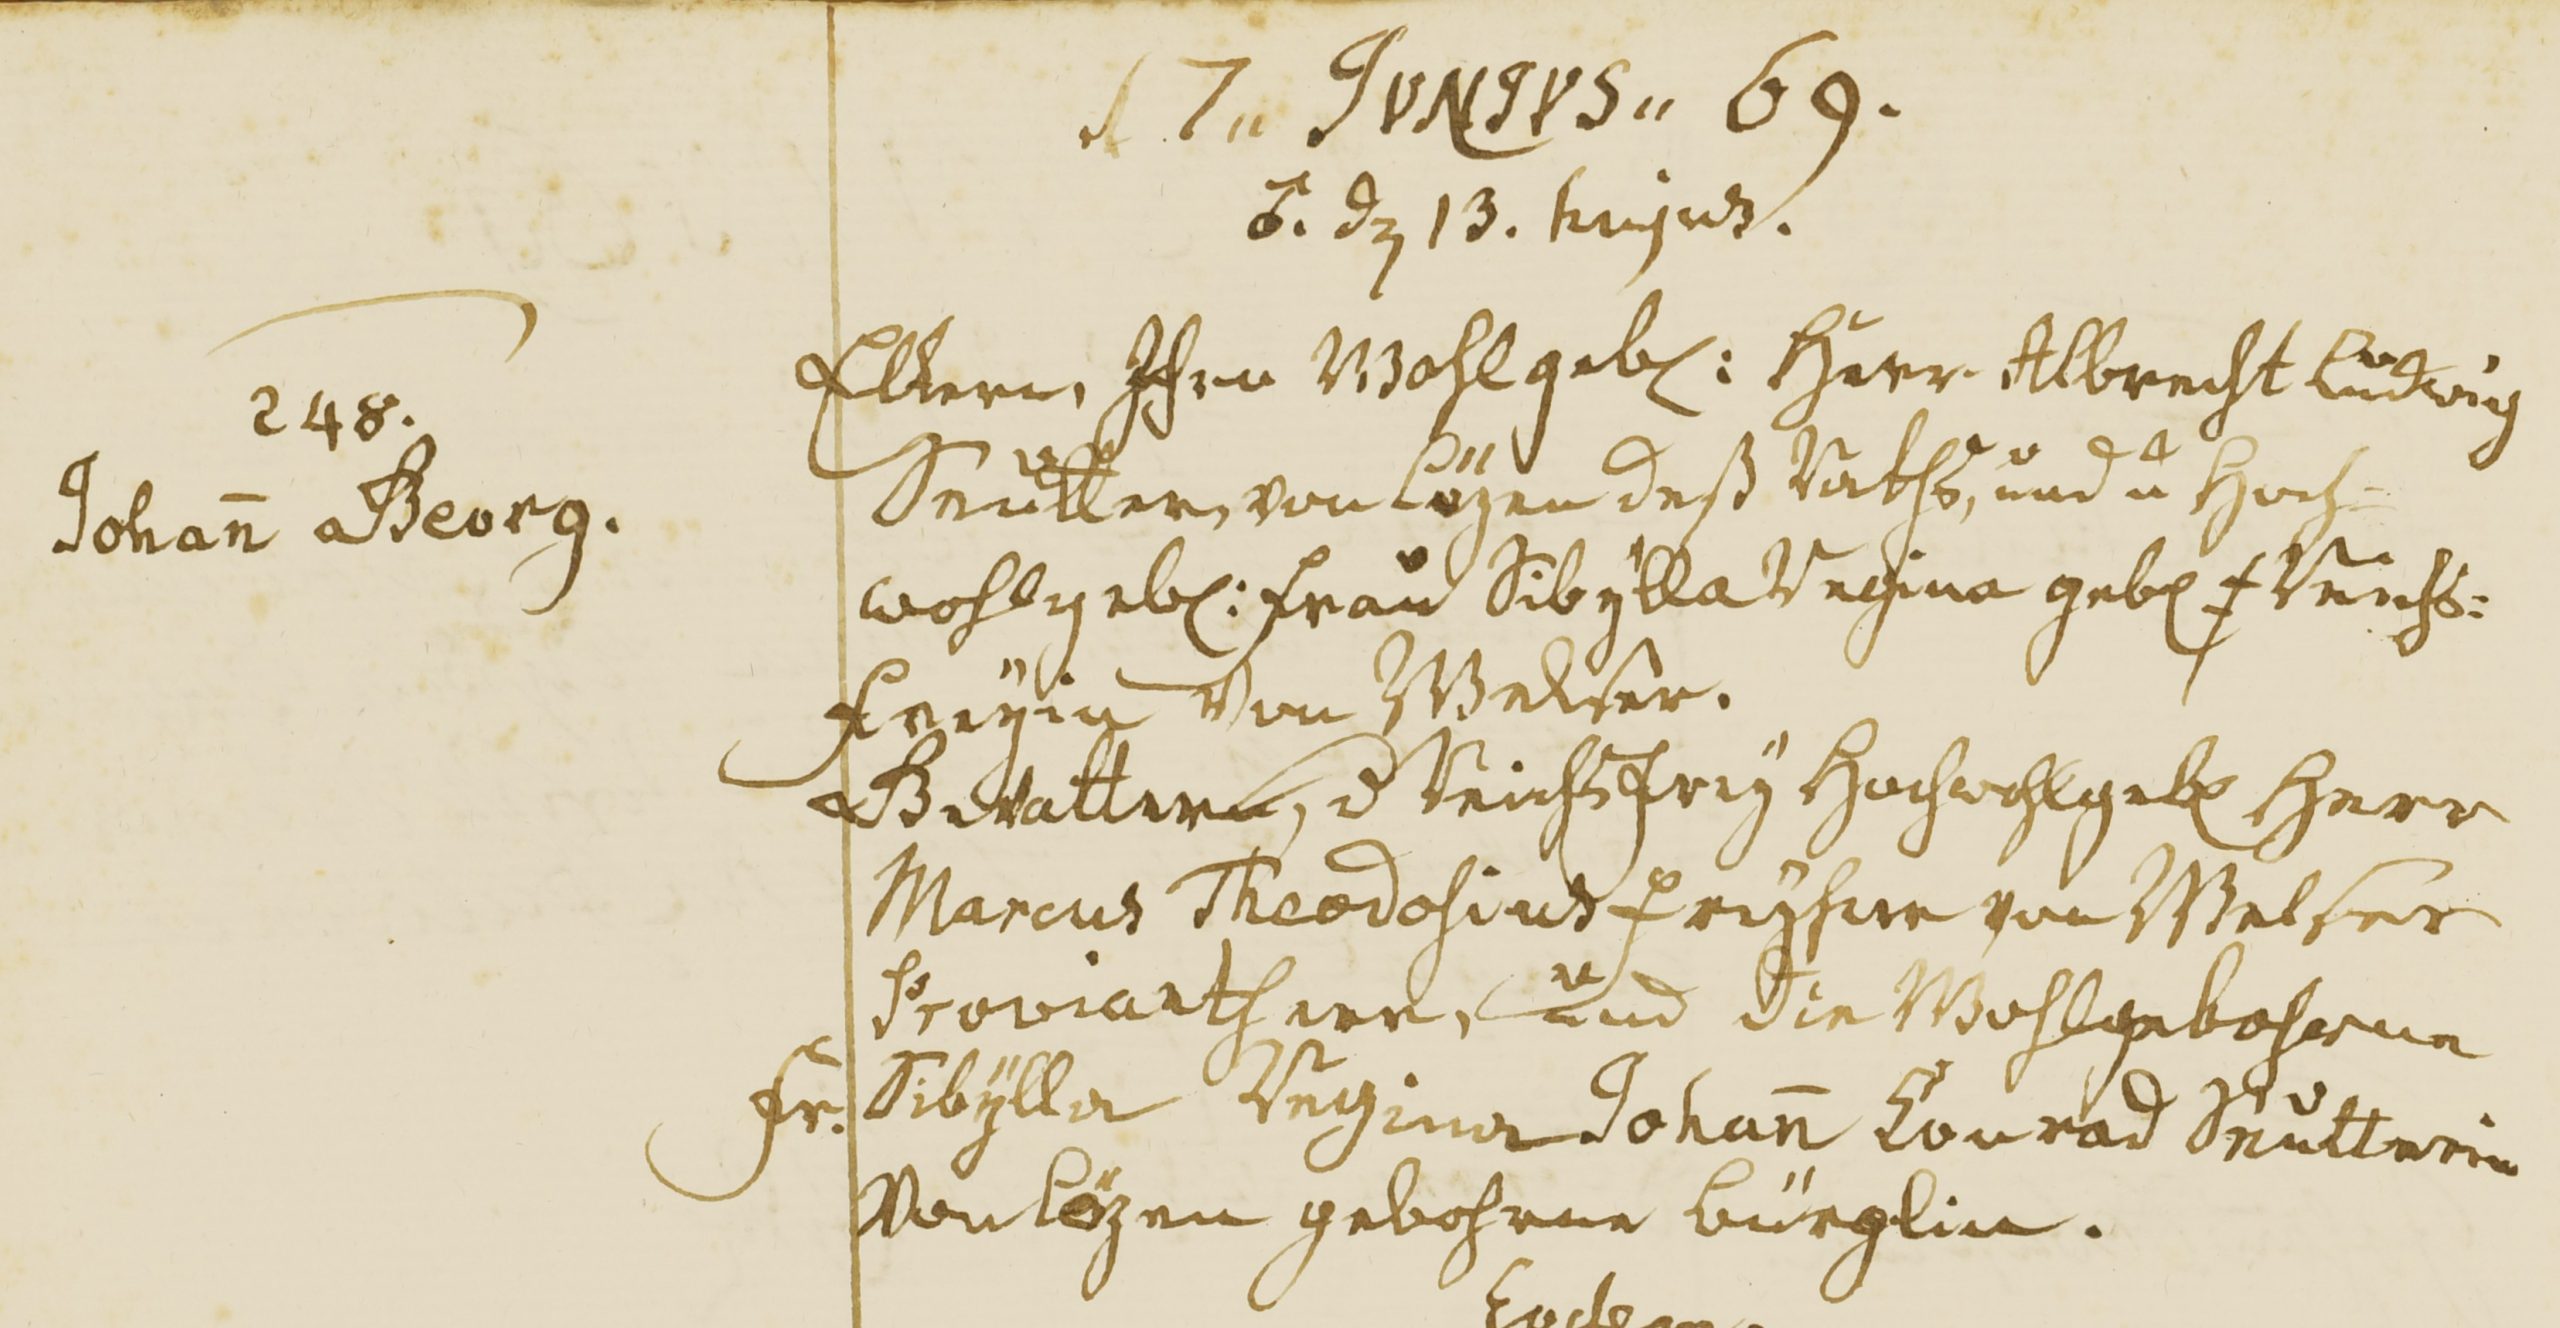 17„ JUNIUS„ 69.
d. 13. hujus.
248.
Johan̄ Georg.
Eltern, Ihro Wohlgeb: Herr Albrecht Ludwig
Seutter, von Lözen deß Raths, und d Hoch=
wohlgeb: Frau Sibÿlla Regina geb Reichs=
Freÿin von Welser.
Gevattern, d Reichs Freÿ Hochwohlgeb Herr
Marcus Theodosius Freÿherr von Welser
Proviantherr, und die Wohlgebohrne
Fr. Sibÿlla Regina Johan̄ Conrad Seutterin
von Lözen gebohrne Bürglin.